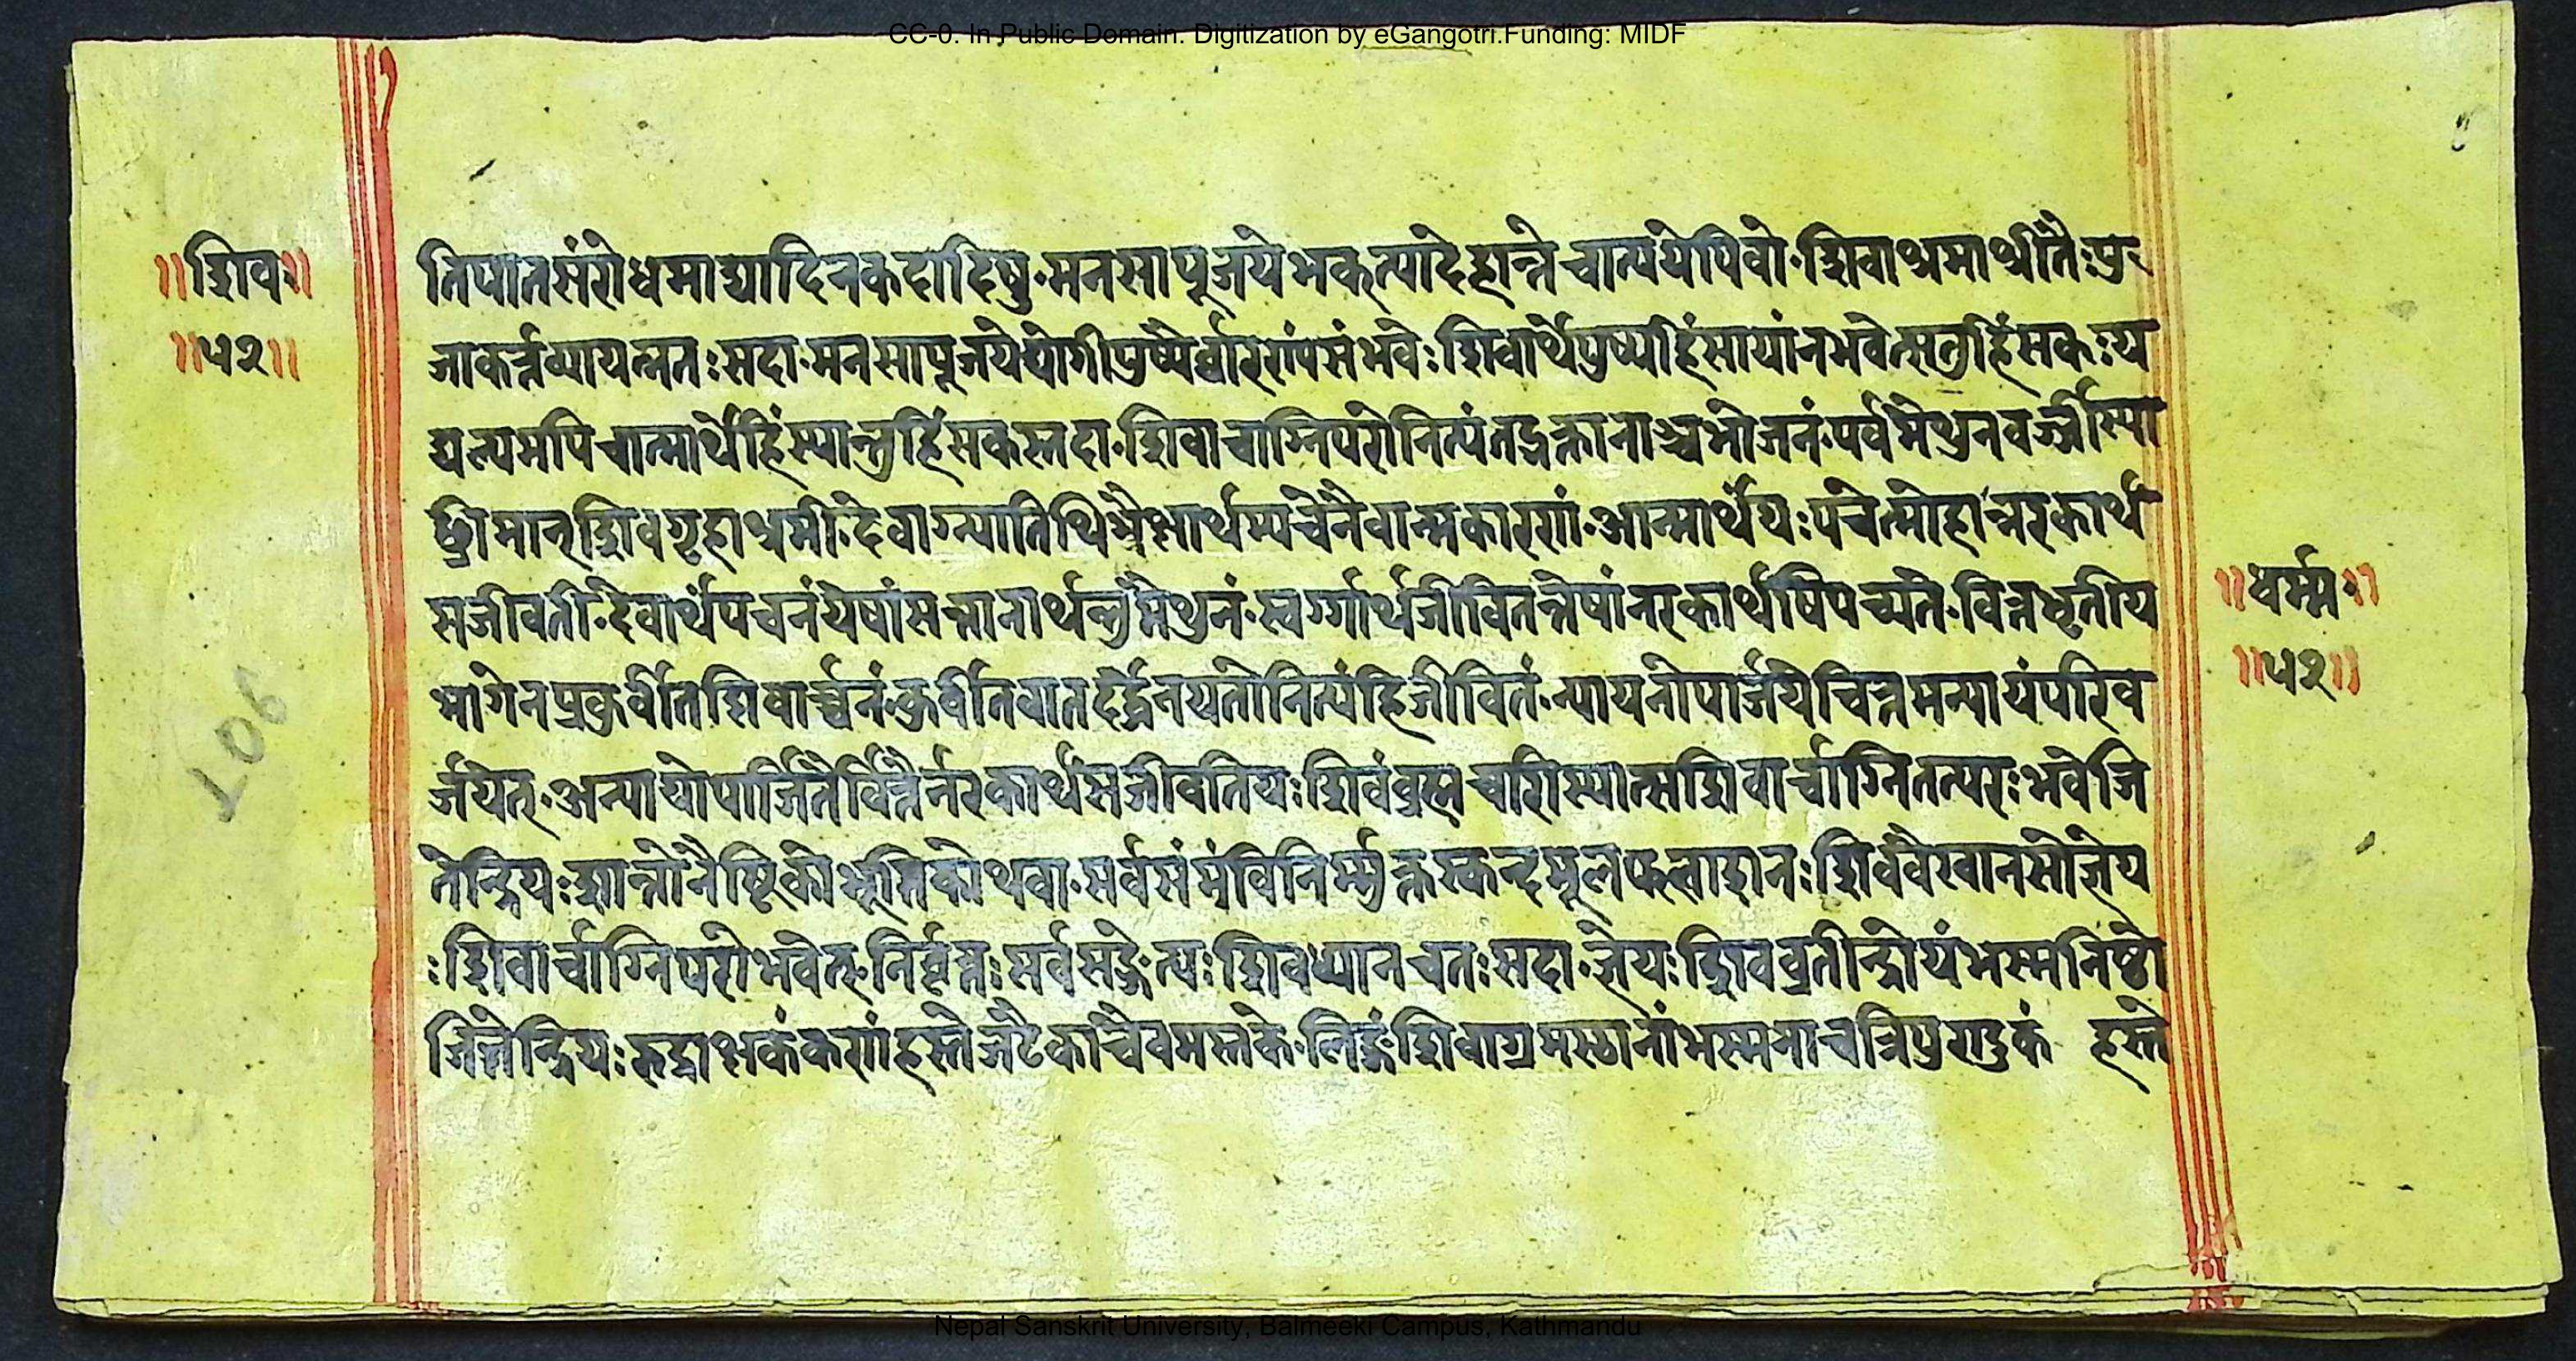 CC-0. In Public Domain. Digitization by eGangotri.Funding: MIDF
॥शिव॥
॥५२॥
तिपातसंरोधमाद्यादिनकदादिषु·मनसापूजयेभक्त्यादेहान्तेचात्ययेपिवो·शिवाश्रमाश्रीतैःपु
जाकर्त्तव्यायत्नतःसदा·मनसापूजयेद्योगीपुष्पैर्वारराांपसंभवैःशिवार्थेपुष्पहिंसायांनभवेत्सतुहिंसकःय
द्यल्पमपिचात्मार्थेहिंस्यान्तुहिंसकस्तदा·शिवाचाग्निपरोनित्यंतद्भक्तानाञ्चभोजनं·पर्वमैथुनवर्ज्जीस्या
च्छ्रीमान्शिवगृहाश्रमी·देवाग्न्यातिथिभैक्षार्थम्पचेनैवात्मकारणां·आत्मार्थेयःपचेत्मोहान्नरकार्थ
सजीवती·देवार्थंपचनंयेषांसन्मानार्थन्तुमैथुनं·स्वर्ग्गार्थजीवितन्तेषांनरकार्थषिपच्यते·वित्तधृतीय
भागेनप्रकुर्वीतशिवार्च्चनं·कुर्वीतवातदर्द्धेनयतोनित्यंहिजीवितं·न्यायनोपार्जयेचित्तमन्यायंपरिव
र्जयेत्·अन्यायोपार्जितैर्वित्तैर्नरकार्थंसजीवतियःशिवंब्रह्मचारिस्यात्सशिवार्चाग्नितत्परःभवेजि
तेन्द्रियःशान्तोनैष्टिकोभूतिकोथवा·सर्वसंमंविनिर्म्मुक्तस्कन्दमूलफलाशनःशिवंवैखानसोज्ञेय
ःशिवार्चाग्निपरोभवेत्·निर्वृत्तःसर्वसङ्गेत्यःशिवध्यानचतःसदा·ज्ञेयःशिवव्रतीन्द्रोयंभस्मनिष्ठो
जितेन्द्रियःरुद्राक्षकंकणांहस्तेजटैकाचैवमस्तके·लिङ्गंशिवाग्रमस्ठानांभस्मनाचत्रिपुराडुकं हस्ते
॥धर्म्म॥
॥५२॥
106
Nepal Sanskrit University, Balmeeki Campus, Kathmandu